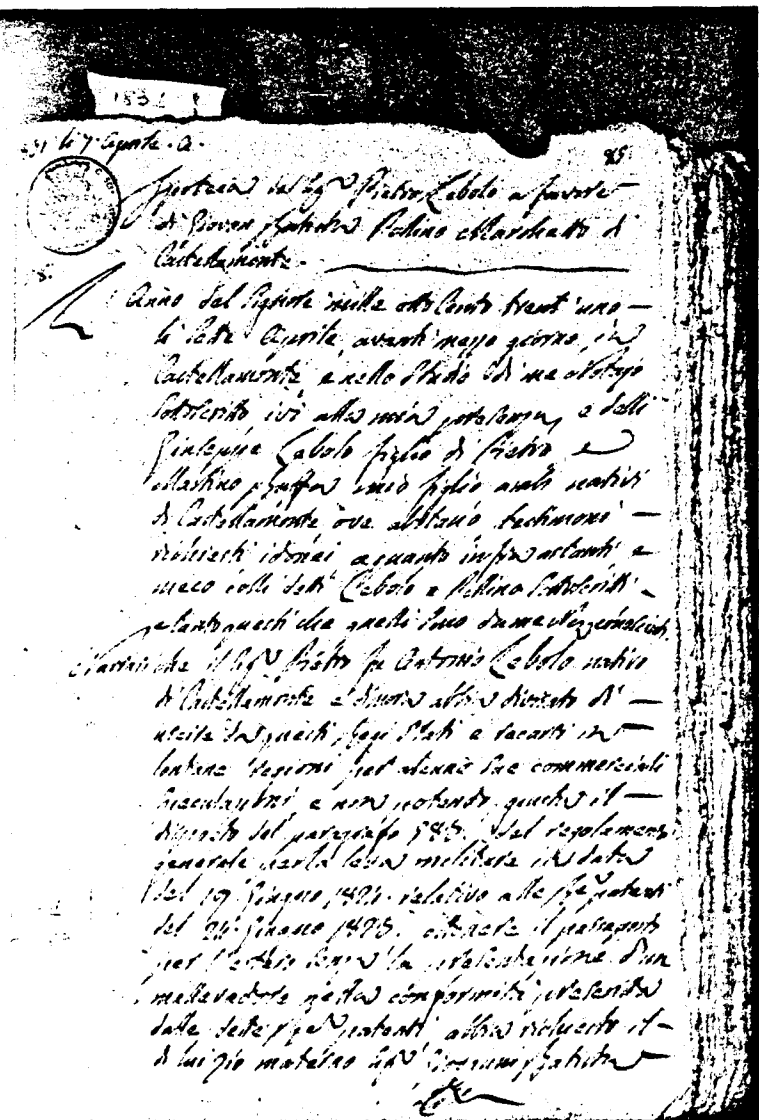 1831
li 7 Aprile
85
del Sigr Pietro Lebolo a favore
di Giovan Battista Pollino Marchetto di
Castellamonte
Anno del Signore mille otto Cento trent'uno
li Sette Aprile, avanti mezzo giorno, in
Castellamonte, e nello Studio di me Notajo
Sottoscritto, ivi alla mia presenza, e delli
Giuseppe Lebolo figlio di Pietro e
Martino Buffa mio figlio ambi nativi
di Castellamonte ove abitano testimoni
richiesti idonei a quanto infra astanti e
meco colli detti Lebolo e Pollino Sottoscritti
e tanto questi che quelli sono da me
che il Sigr Pietro fu Antonio Lebolo nativo
di Castellamonte e dimora abbia divisato di
uscire da questi Regi Stati e recarsi in
lontane regioni per alcune sue commerciali
speculazioni, e non potendo giusta il
disposto del paragrafo del regolamento
generale per la leva militare in data
del relativo alle patenti
del ottenere il passaporto
per l'estero senza la presentazione d'un
mallevadore nella conformità
dalle dette patenti abbia richiesto il
di lui zio materno Sigr Giovanni Battista